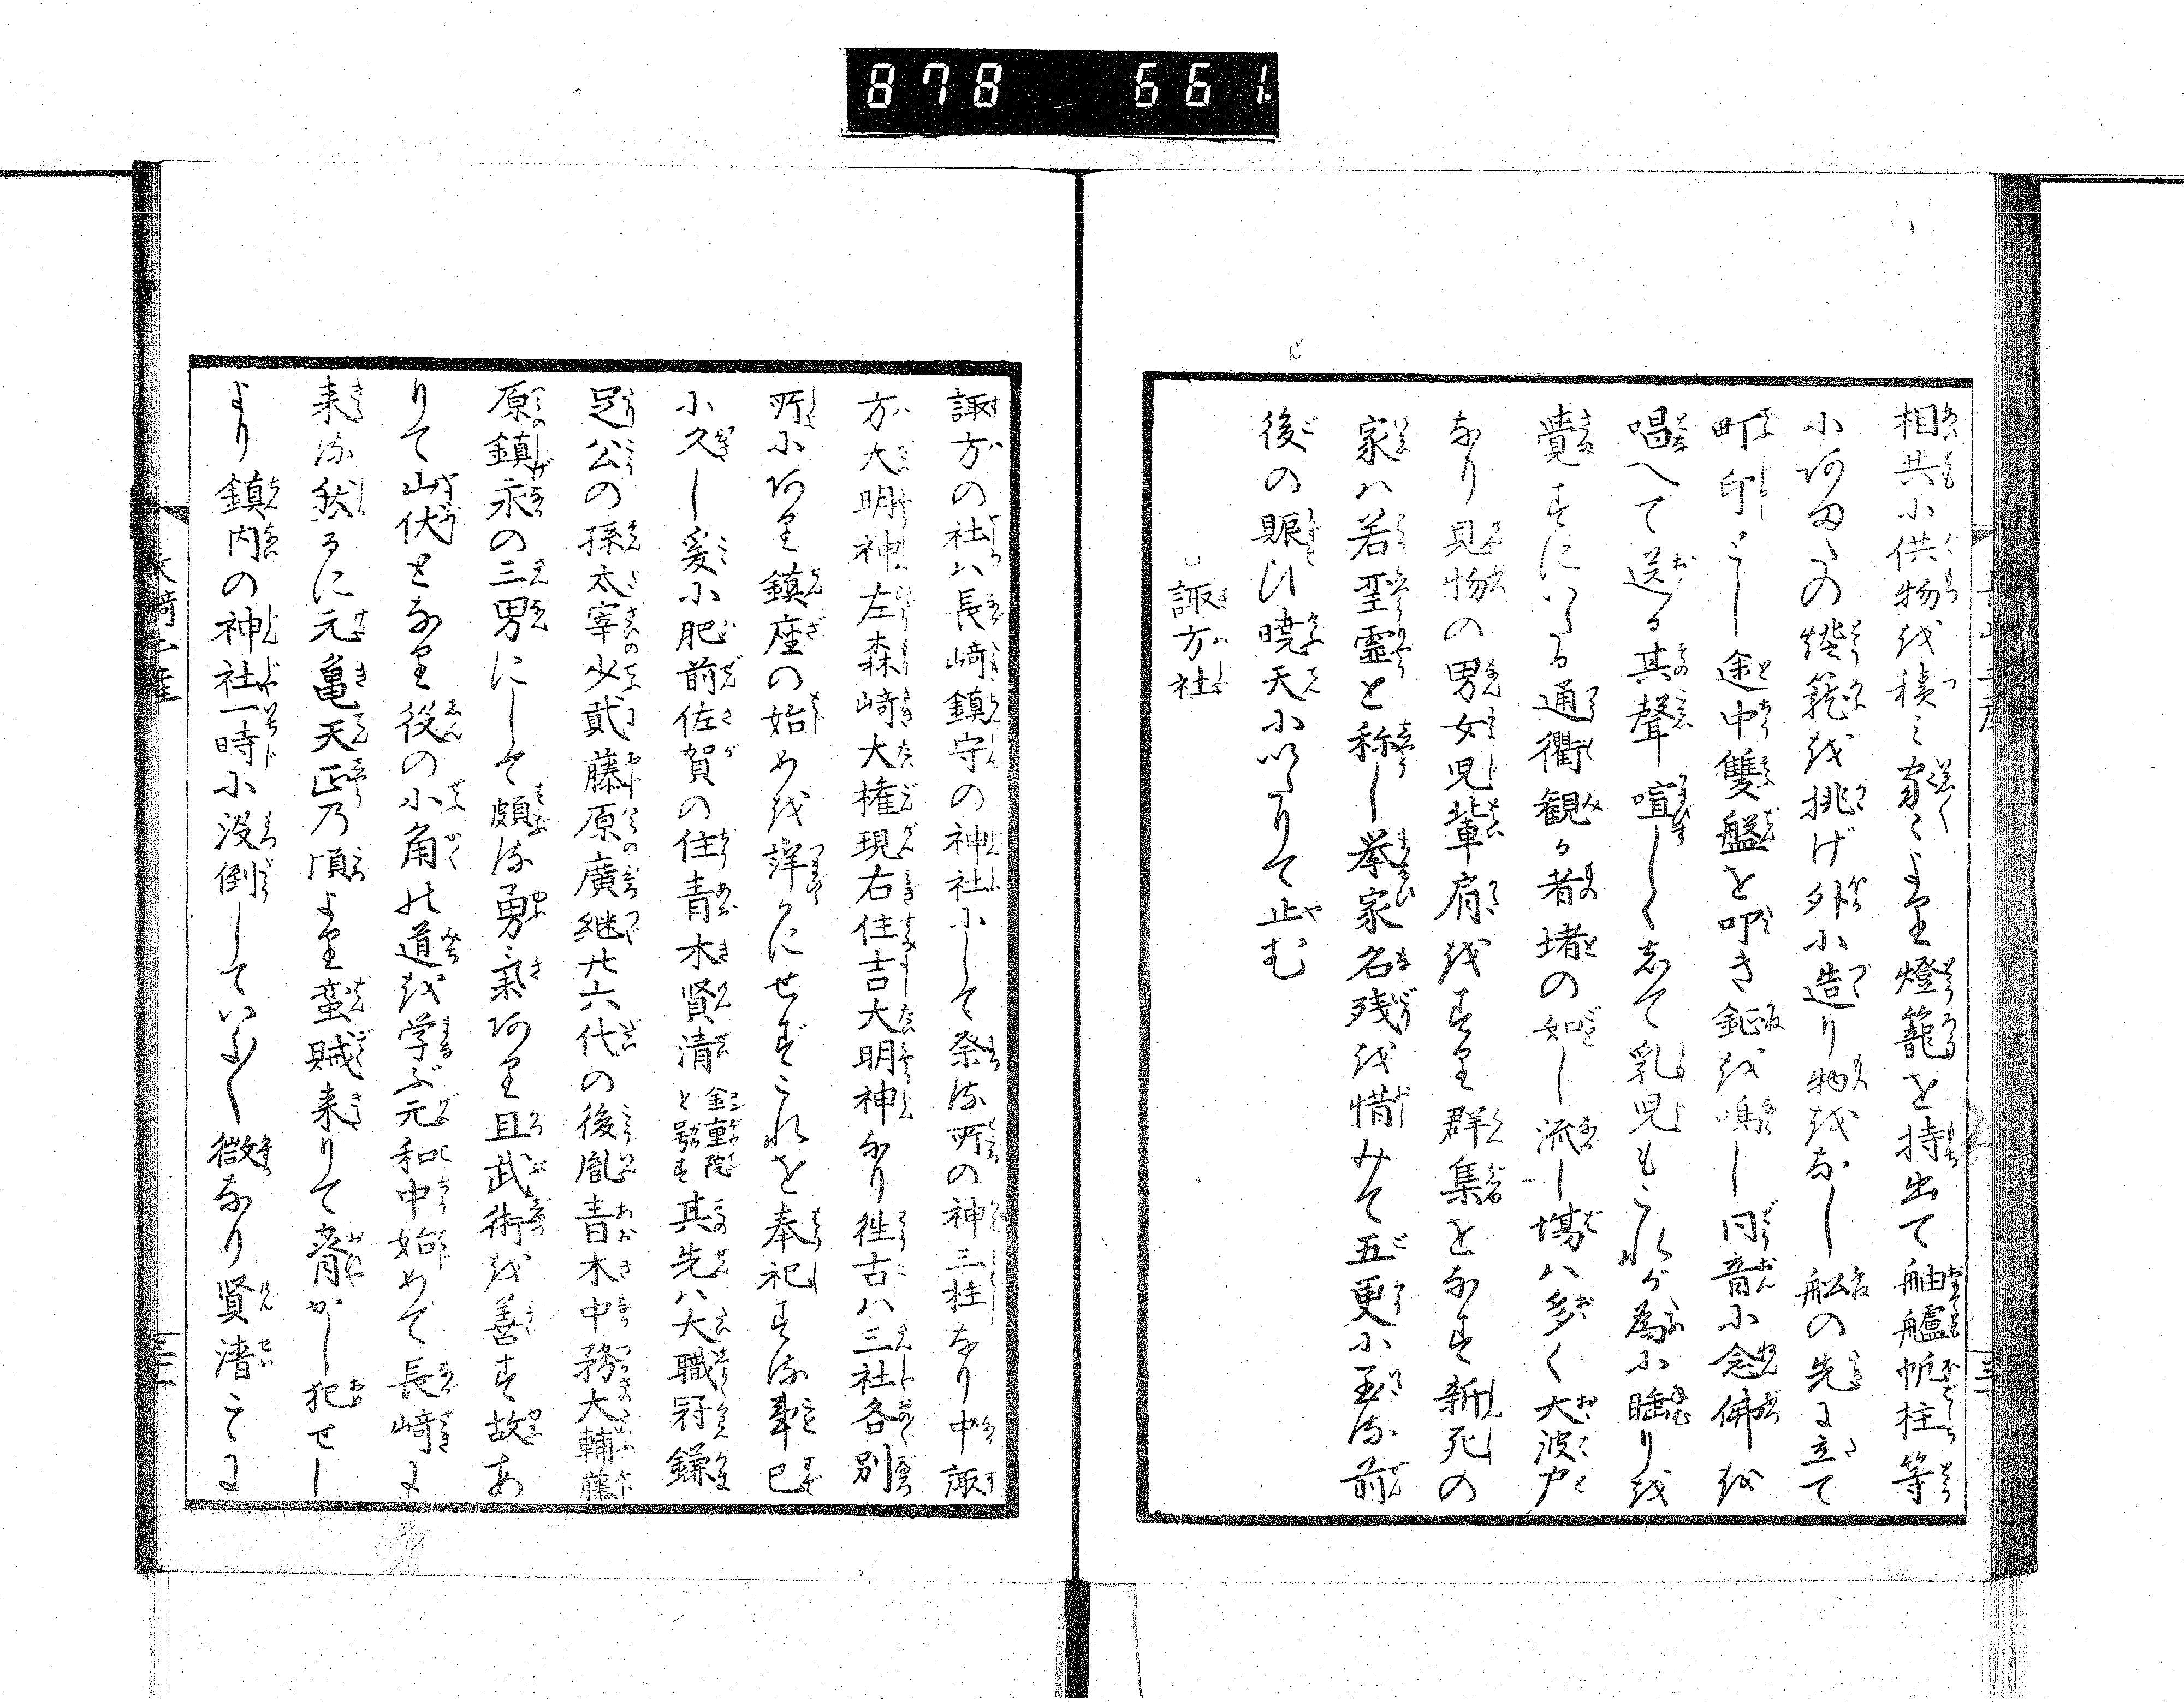 878 661.
相共に供物を積み家々より燈籠を持出て舳艫帆柱等
に何百の燈籠を挑げ外に造り物をなし船の先に立て
町印とし途中雙盤を叩き鉦を鳴し同音に念佛を
唱へて送る其聲喧しく為て乳児もこれが為に睡りを
覺すにいたる通衢観る者堵の如し流し場ハ多く大波戸
なり見物の男女児輩肩をすり群集をなす新死の
家ハ若聖霊と称し挙家名残を惜みて五更に至る前
後の賑ひ暁天にいたりて止む
諏方社
諏方の社ハ長﨑鎮守の神社にして祭る所の神三柱なり中諏
方大明神左森﨑大権現右住吉大明神なり徃古ハ三社各別
所にあり鎮座の始めを詳かにせずこれを奉祀する事已
に久し爰に肥前佐賀の住青木賢清金重院と号す其先ハ大職冠鎌
足公の孫太宰少貳藤原廣継廿六代の後胤青木中務大輔藤
原鎮永の三男にして頗る勇氣あり且武術を善す故あ
りて山伏となり役の小角の道を学ぶ元和中始めて長﨑に
来る然るに元亀天正乃頃より蛮賊来りて脅かし犯せし
より鎮内の神社一時に没倒していよ〱微なり賢清こゝに